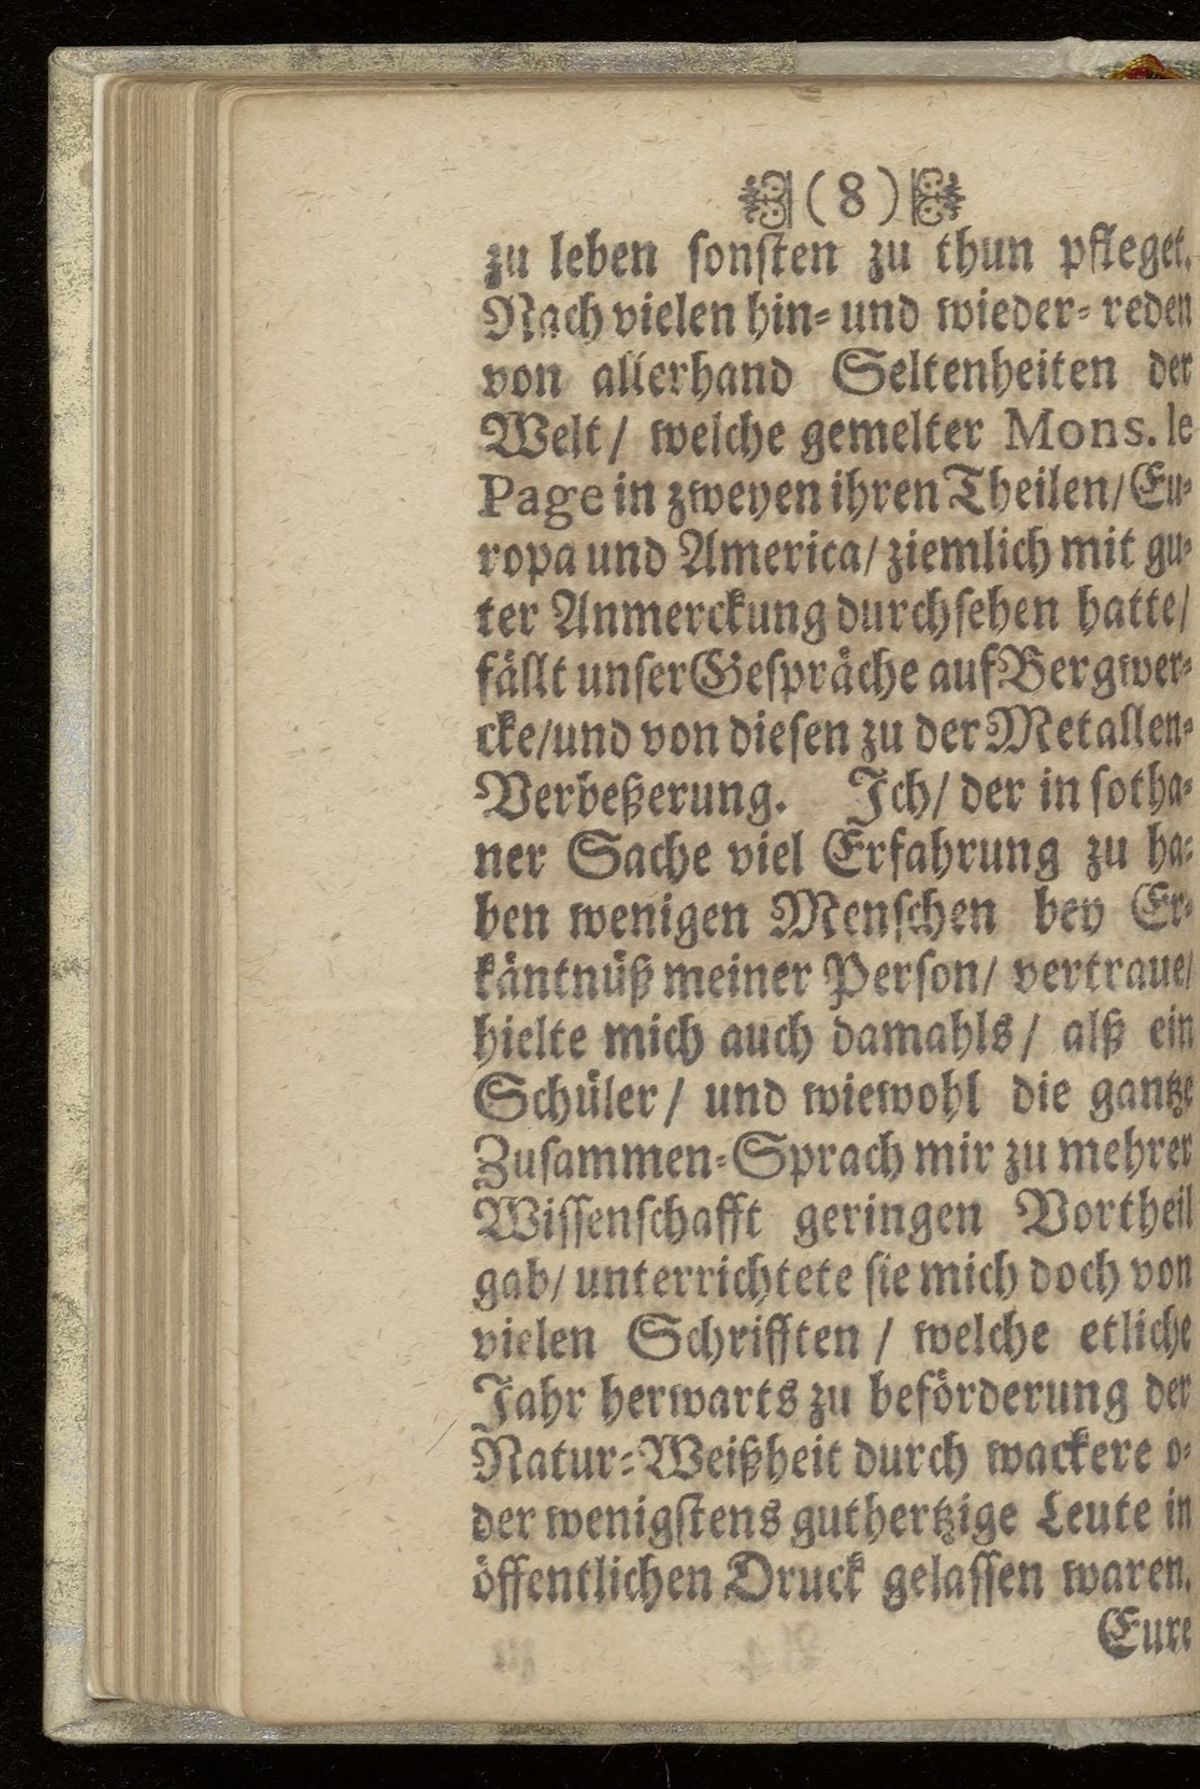 (8)
zu leben ſonſten zu thun pfleget.
Nach vielen hin- und wieder-reden
von allerhand Seltenheiten der
Welt/ welche gemelter Mons. le
Page in zweyen ihren Theilen/ Eu-
ropa und America/ ziemlich mit gu-
ter Anmerckung durchſehen hatte/
fällt unſer Geſpräche auf Bergwer-
cke/ und von dieſen zu der Metallen-
Verbeßerung. Ich/ der in ſotha-
ner Sache viel Erfahrung zu ha-
ben wenigen Menſchen bey Er-
käntnüß meiner Perſon/ vertraue/
hielte mich auch damahls/ alß ein
Schüler/ und wiewohl die gantze
Zuſammen-Sprach mir zu mehrer
Wiſſenſchafft geringen Vortheil
gab/ unterrichtete ſie mich doch von
vielen Schrifften / welche etliche
Jahr herwarts zu beförderung der
Natur-Weißheit durch wackere o-
der wenigſtens guthertzige Leute in
öffentlichen Druck gelaſſen waren.
Eure